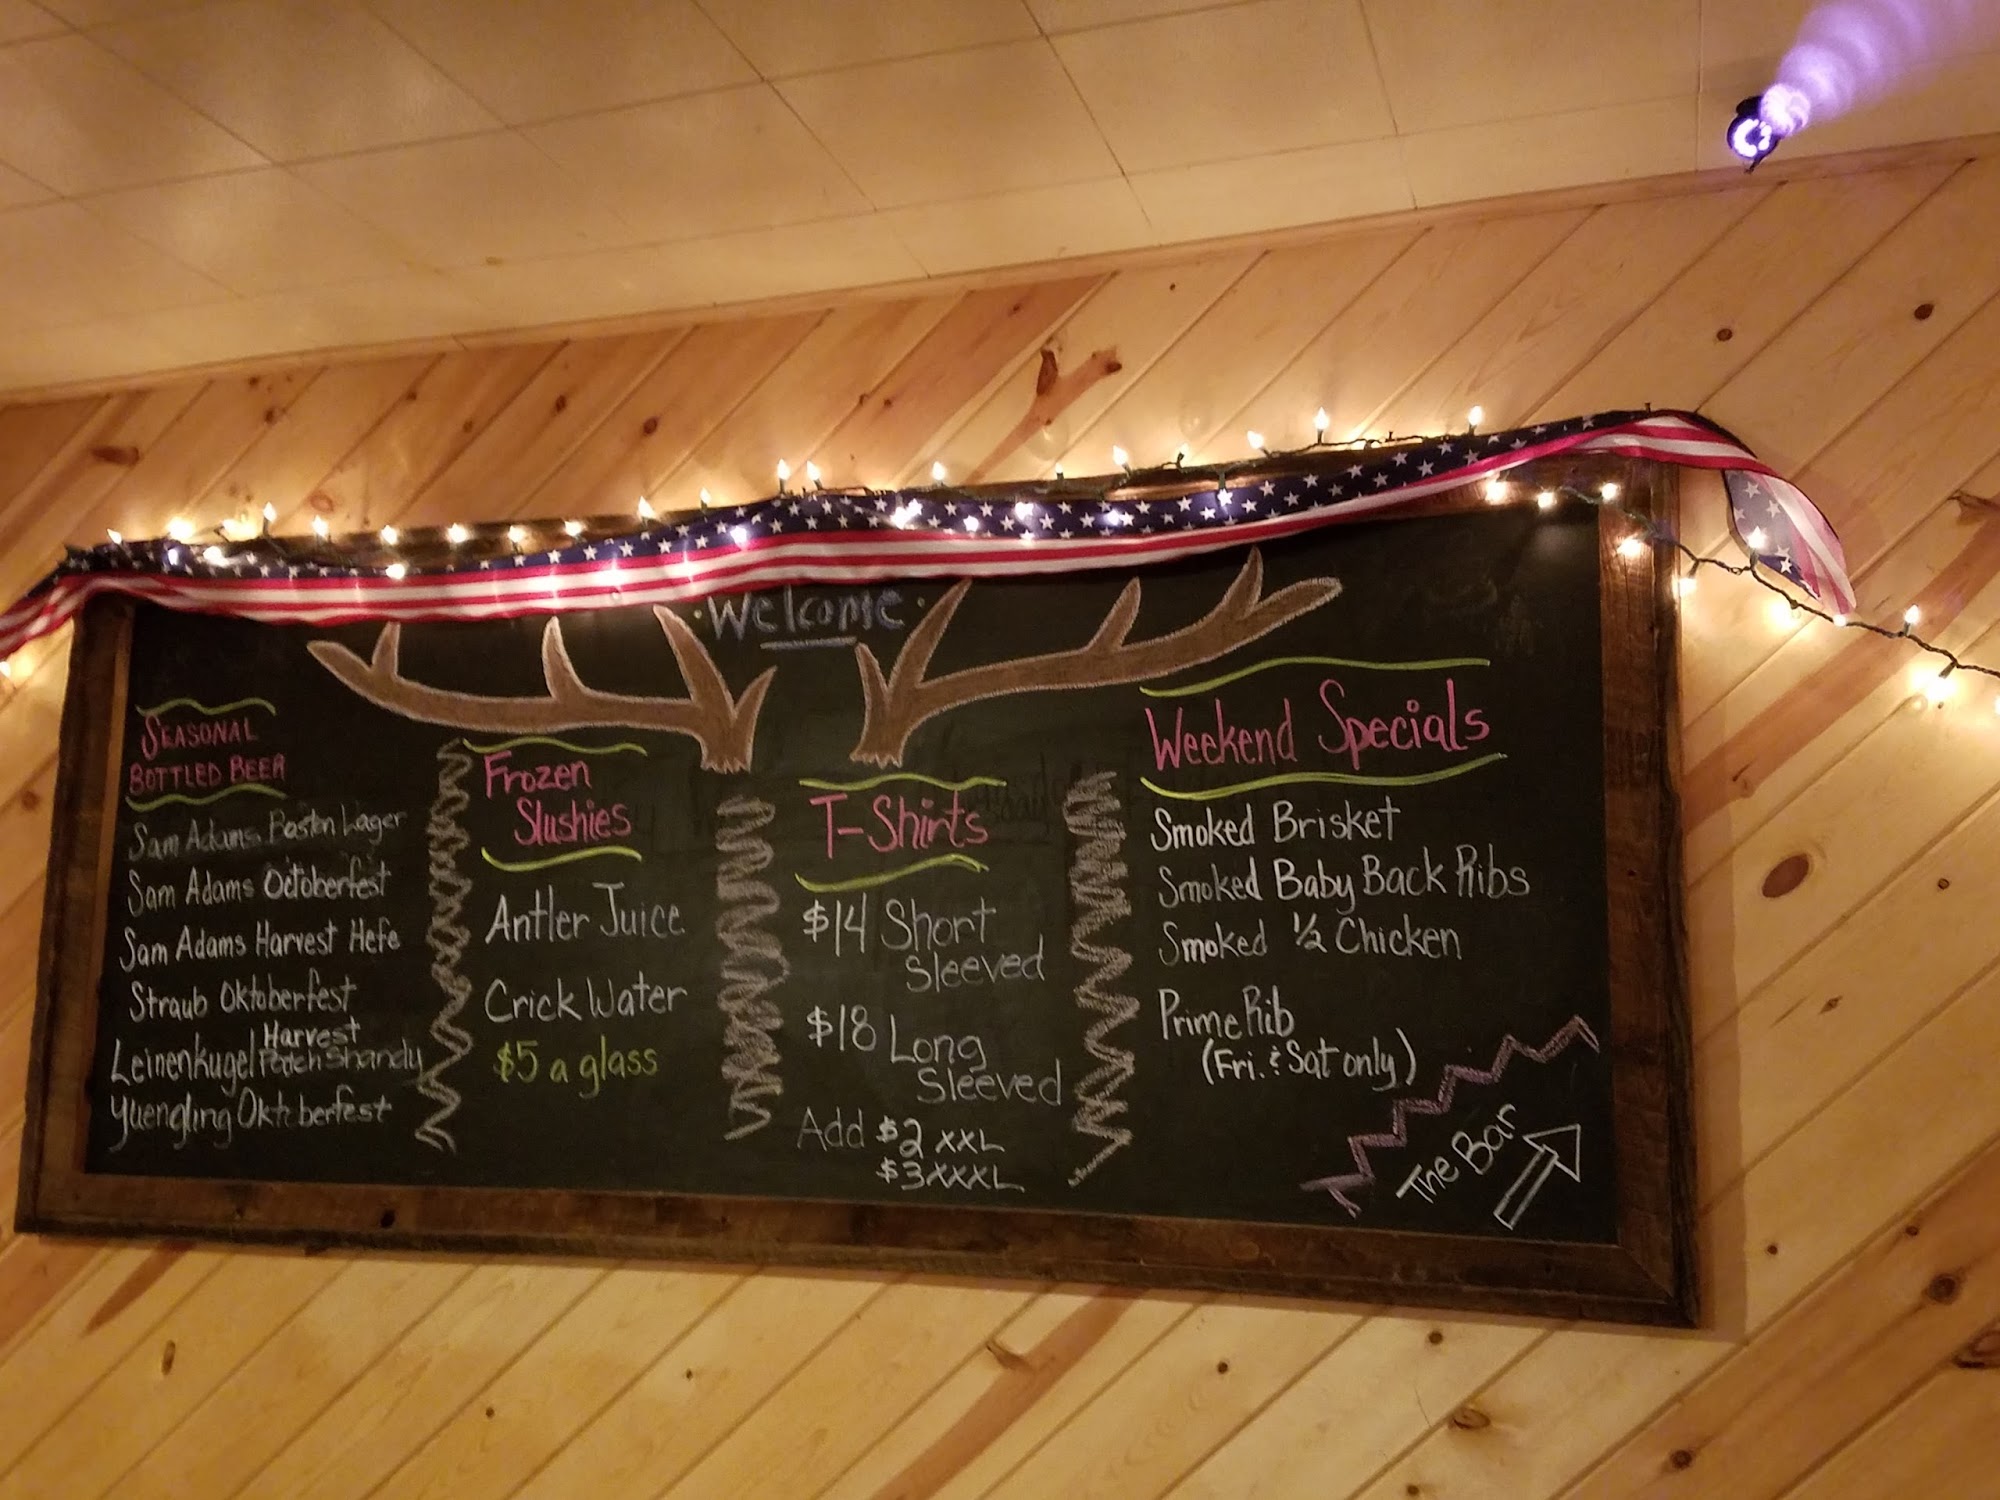 Welcome
SEASONAL
BOTTLED BEER
Sam Adams Boston Lager
Sam Adams Octoberfest
Sam Adams Harvest Hefe
Straub Oktoberfest
Harvest
Leinenkugel Patch Shandy
Yuengling Oktoberfest
Frozen
Slushies
Antler Juice
Crick Water
$5 a glass
T-Shirts
$14 Short
Sleeved
$18 Long
Sleeved
Add $2 XXL
$3 XXXL
Weekend Specials
Smoked Brisket
Smoked Baby Back Ribs
Smoked ½ Chicken
Prime Rib
(Fri. & Sat only)
The Bar